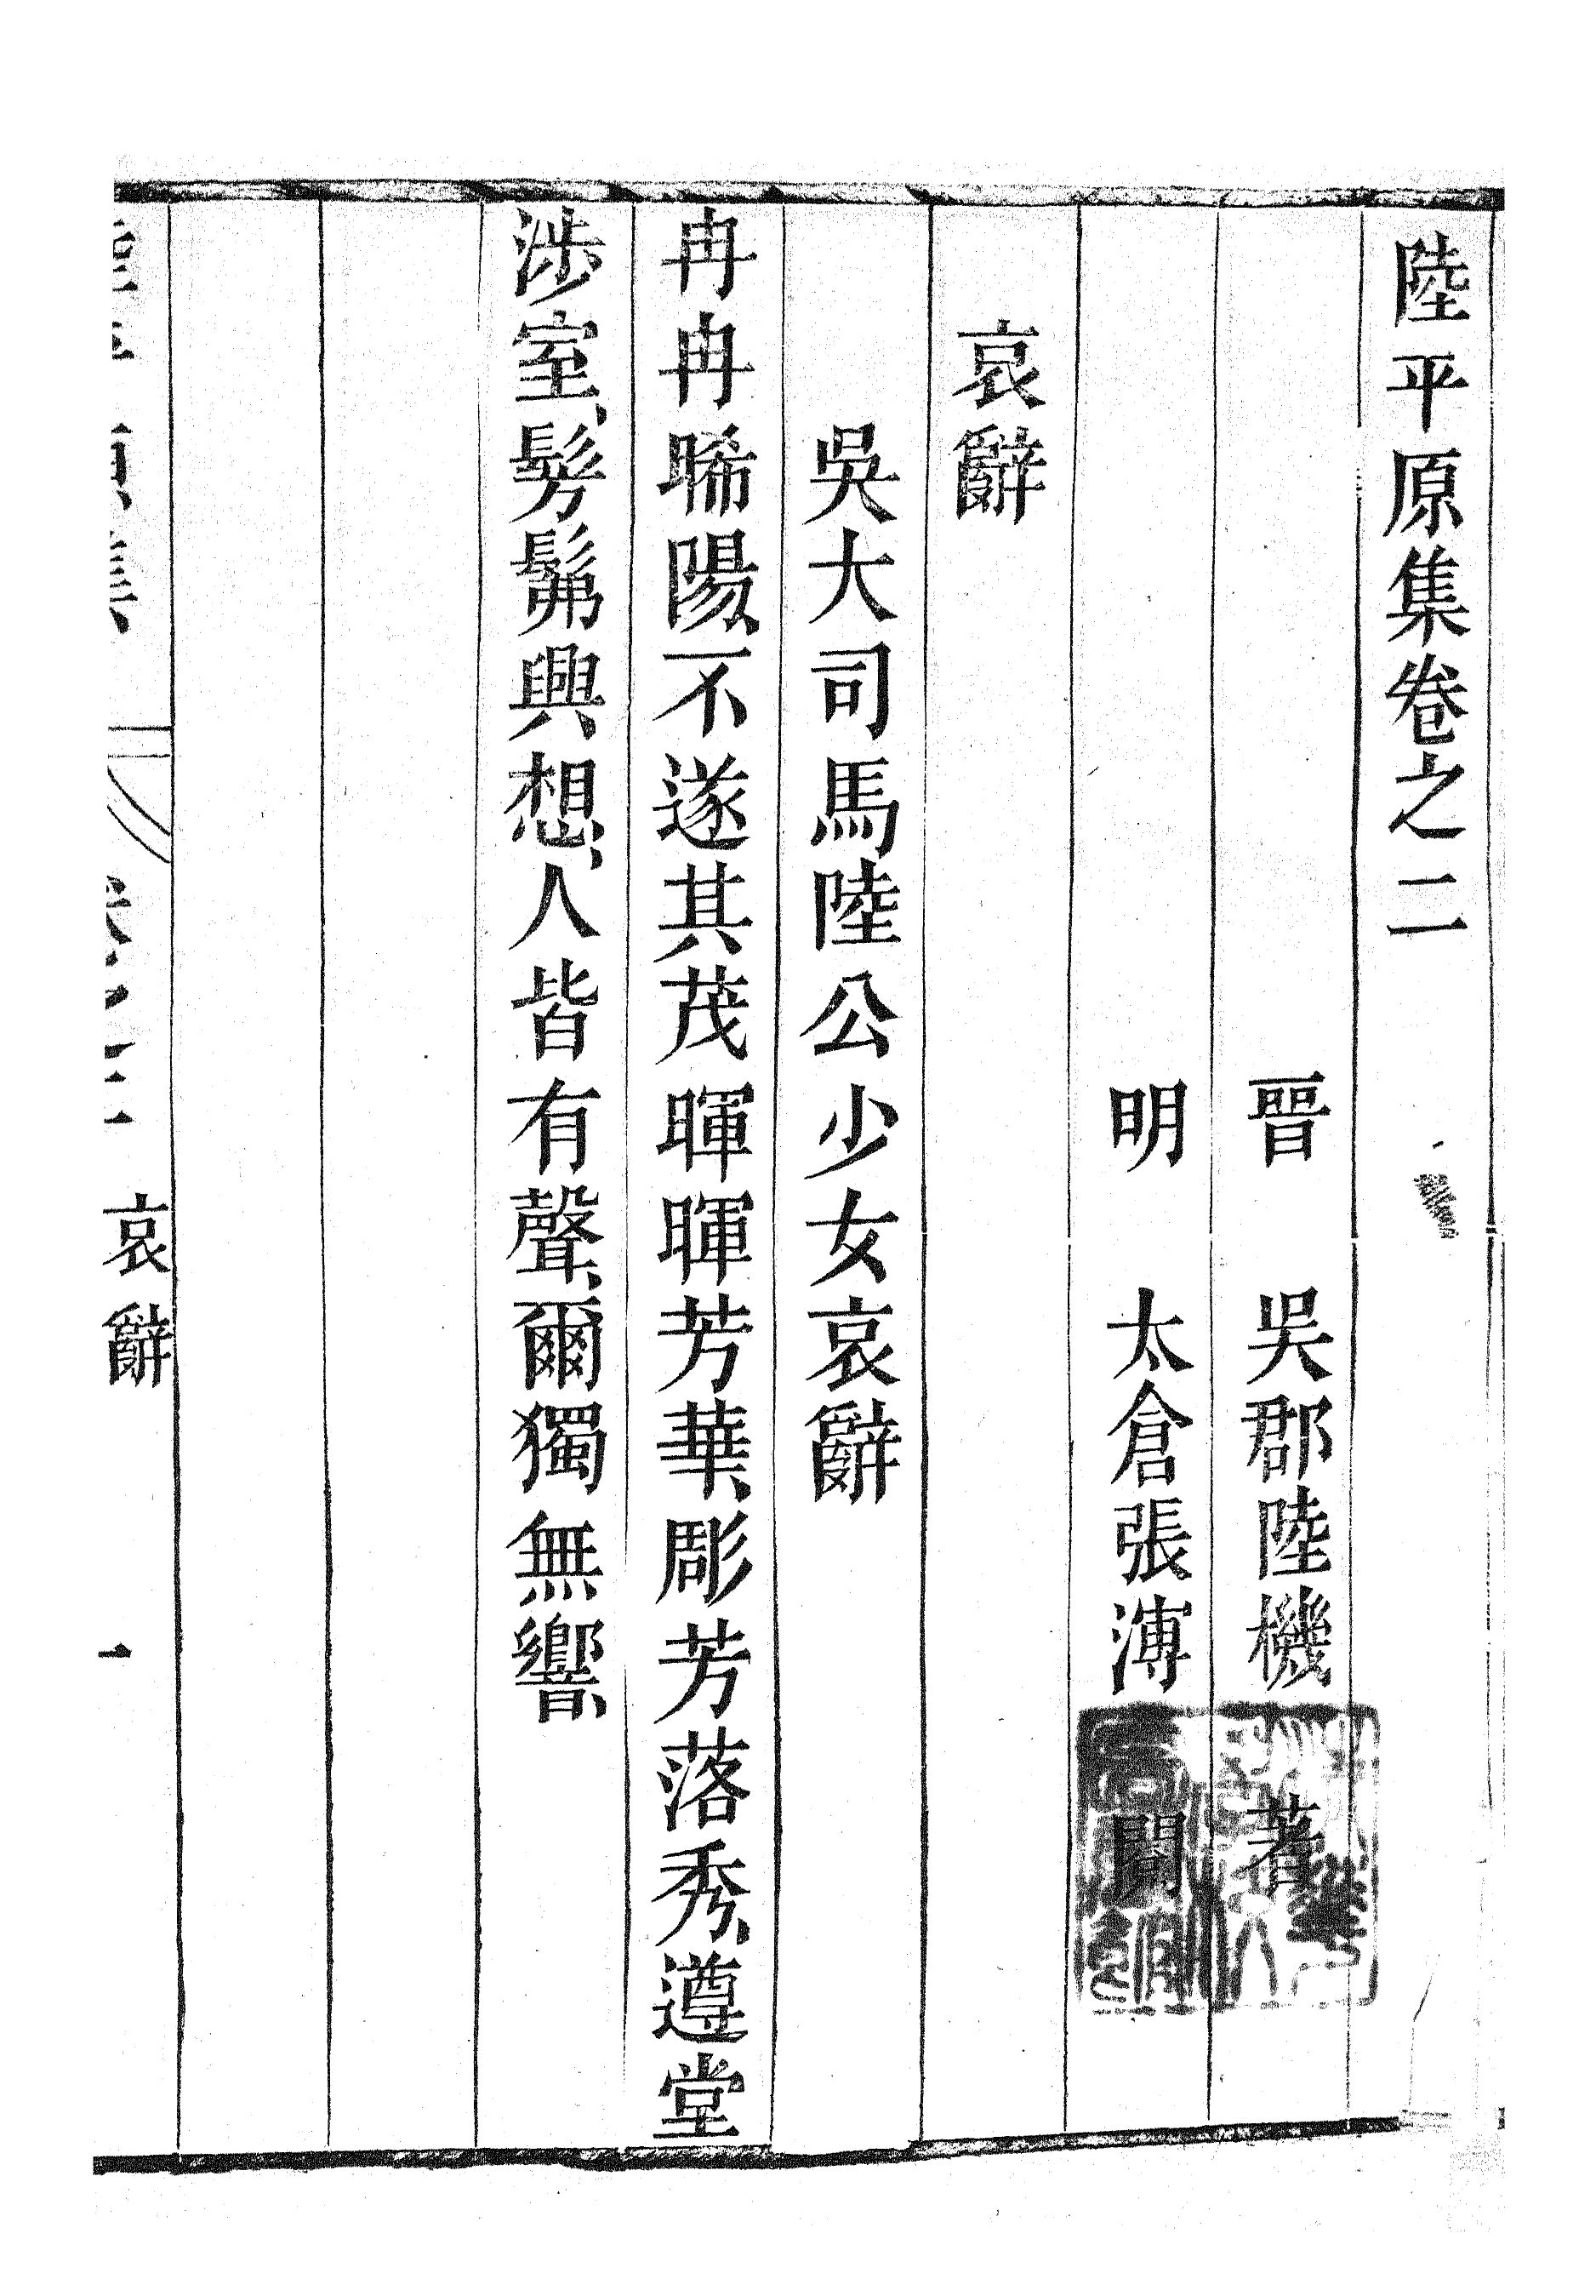 陸平原集卷之二
晉　吳郡陸機　著
明　太倉張溥　閱
哀辭
吳大司馬陸公少女哀辭
冉冉晞陽、不遂其茂暉暉芳華、彫芳落秀、遵堂
涉室、髣髴興想、人皆有聲、爾獨無響、
陸平原集　卷之二　哀辭　一